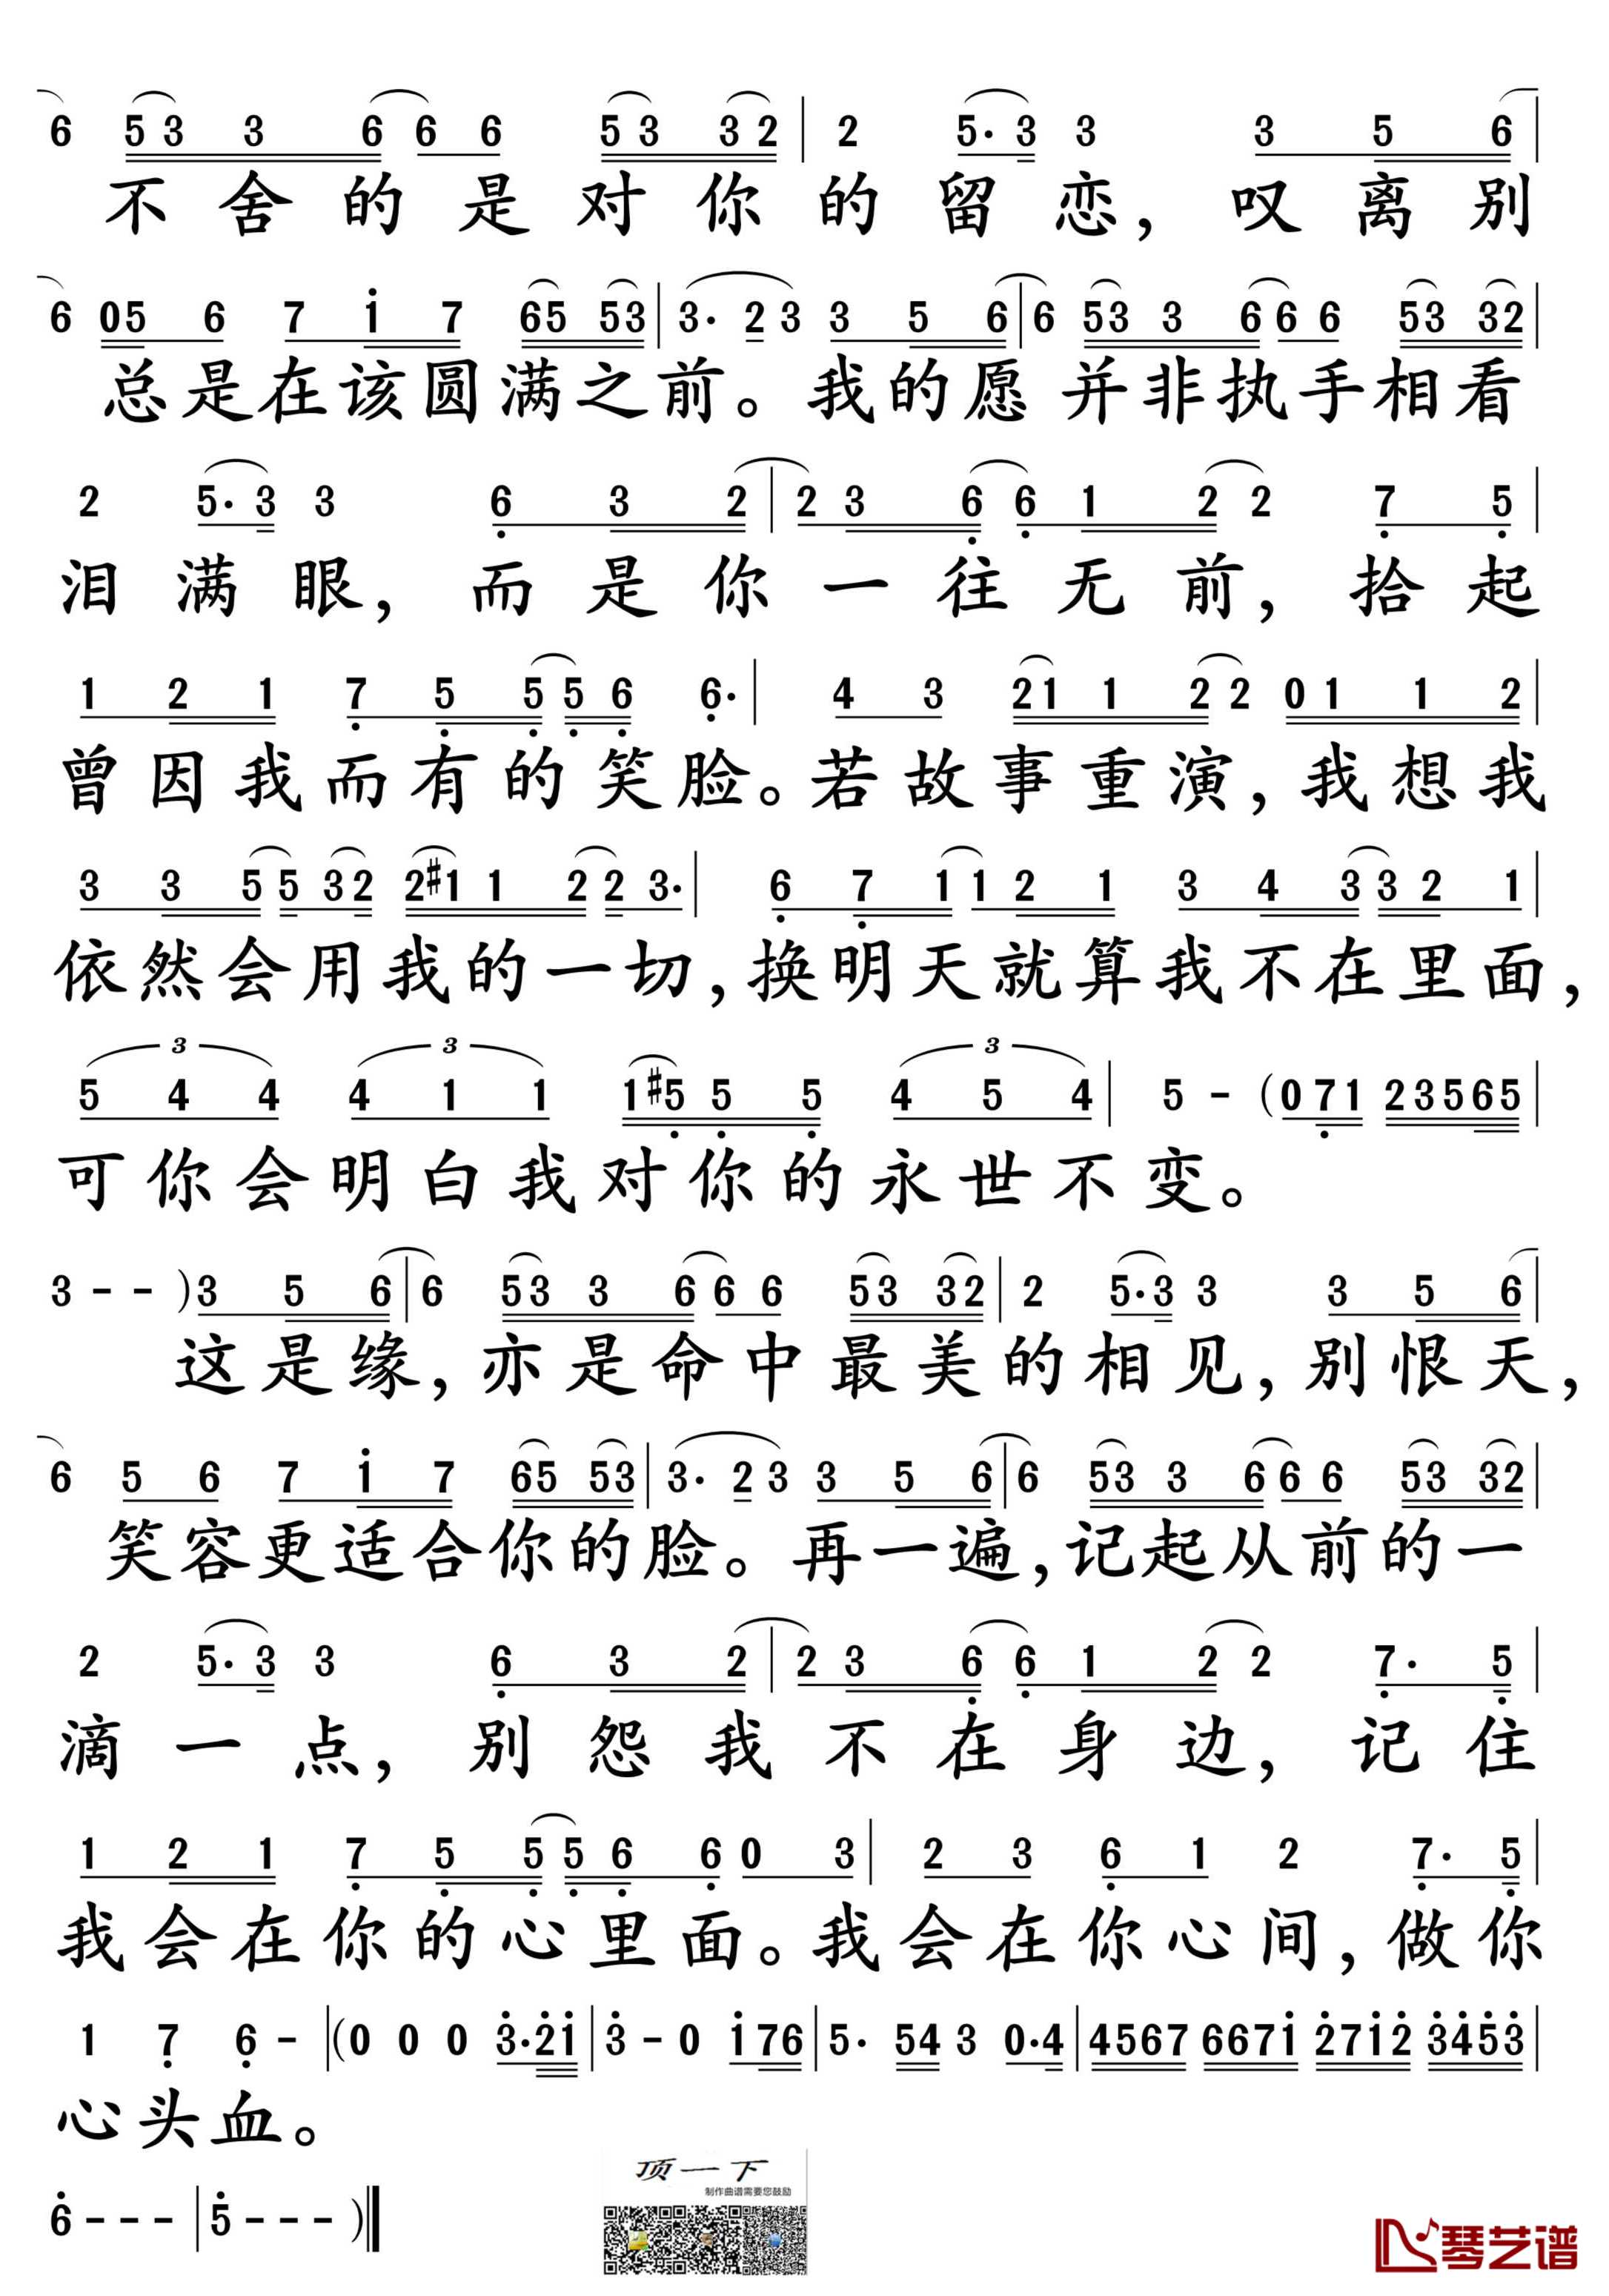 6 53 3 6 6 6 53 32 | 2 5·3 3 3 5 6 |
不舍的是对你的留恋，叹离别
6 05 6 7 1 7 65 53 | 3· 2 3 3 5 6 | 6 53 3 6 6 6 53 32 |
总是在该圆满之前。我的愿并非执手相看
2 5·3 3 6 3 2 | 2 3 6 6 1 2 2 7 5 |
泪满眼，而是你一往无前，拾起
1 2 1 7 5 5 5 6 6· | 4 3 21 1 2 2 0 1 1 2 |
曾因我而有的笑脸。若故事重演，我想我
3 3 5 5 32 2#1 1 2 2 3· | 6 7 1 1 2 1 3 4 3 3 2 1 |
依然会用我的一切，换明天就算我不在里面，
3 3 3
5 4 4 4 1 1 1#5 5 5 4 5 4 | 5 - (0 7 1 2 3 5 6 5 |
可你会明白我对你的永世不变。
3 - - ) 3 5 6 | 6 53 3 6 6 6 53 32 | 2 5·3 3 3 5 6 |
这是缘，亦是命中最美的相见，别恨天，
6 5 6 7 1 7 65 53 | 3· 2 3 3 5 6 | 6 53 3 6 6 6 53 32 |
笑容更适合你的脸。再一遍，记起从前的一
2 5·3 3 6 3 2 | 2 3 6 6 1 2 2 7· 5 |
滴一点，别怨我不在身边，记住
1 2 1 7 5 5 5 6 6 0 3 | 2 3 6 1 2 7· 5 |
我会在你的心里面。我会在你心间，做你
1 7 6 - | (0 0 0 3·21 | 3 - 0 1 76 | 5· 54 3 0·4 | 4567 6671 2712 3453 |
心头血。
顶一下
制作曲谱需要您鼓励
6 - - - | 5 - - - ) ||
琴艺谱